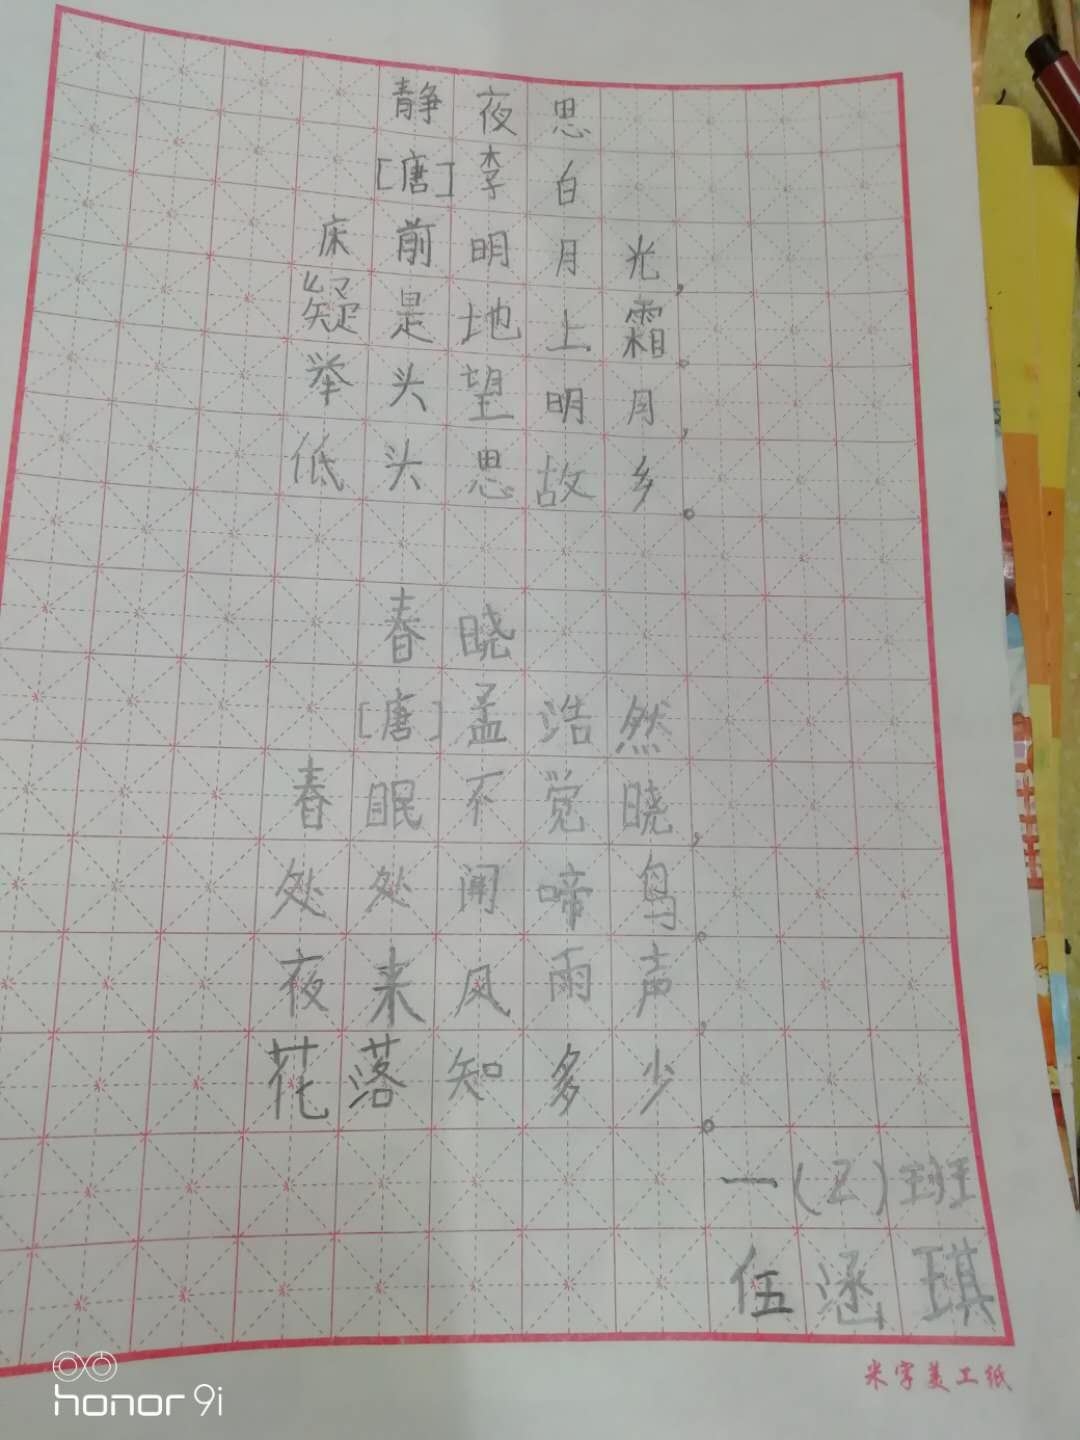 静夜思
[唐]李白
床前明月光，
疑是地上霜。
举头望明月，
低头思故乡。
春晓
[唐]孟浩然
春眠不觉晓，
处处闻啼鸟。
夜来风雨声，
花落知多少。
一(2)班
伍涵琪
米字美工纸
honor 9i